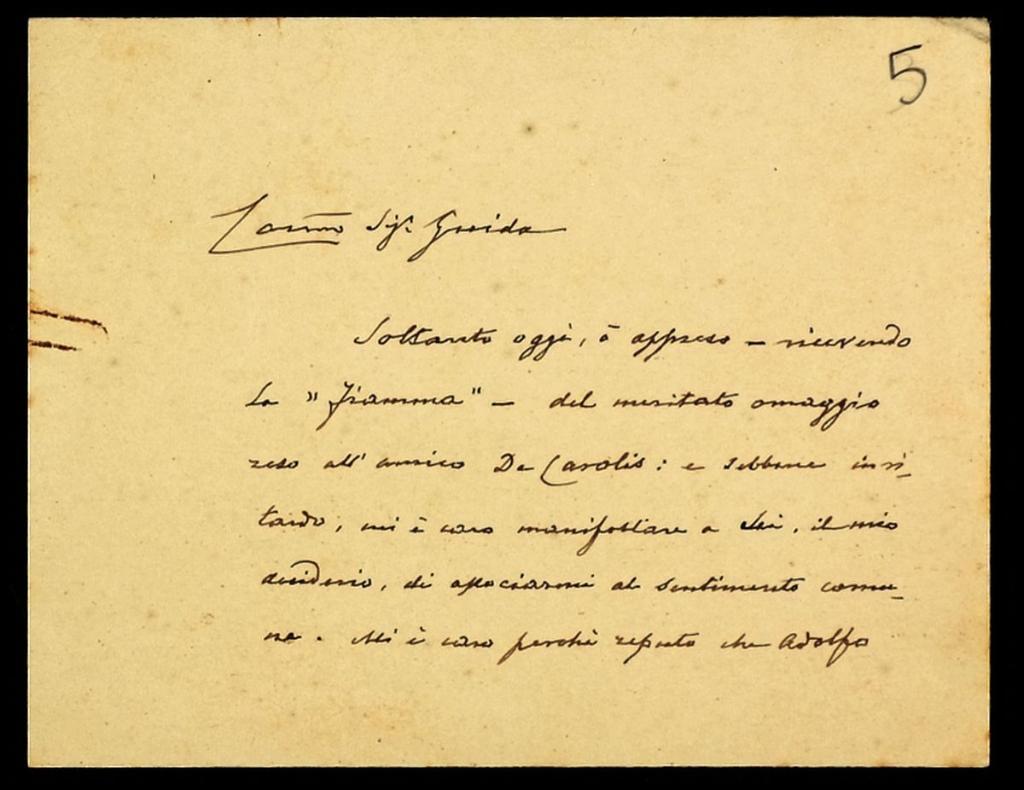 5
Car.mo Sig. Guida
Soltanto oggi, ò appreso – ricevendo
la "Fiamma" – del meritato omaggio
reso all'amico De Carolis: e sebbene in ri-
tardo, mi è caro manifestare a Lei, il mio
desiderio, di associarmi al sentimento comu-
ne. Mi è caro perchè reputo che Adolfo